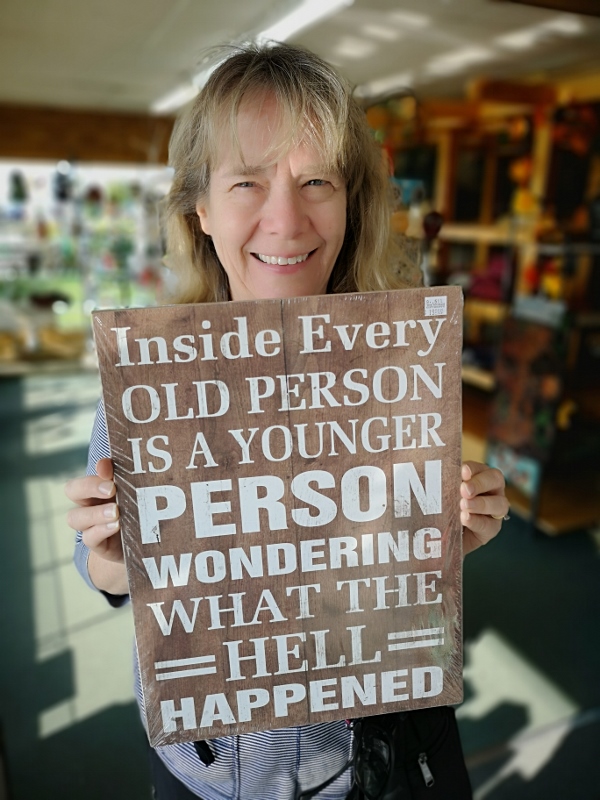 Inside Every
OLD PERSON
IS A YOUNGER
PERSON
WONDERING
WHAT THE
HELL
HAPPENED